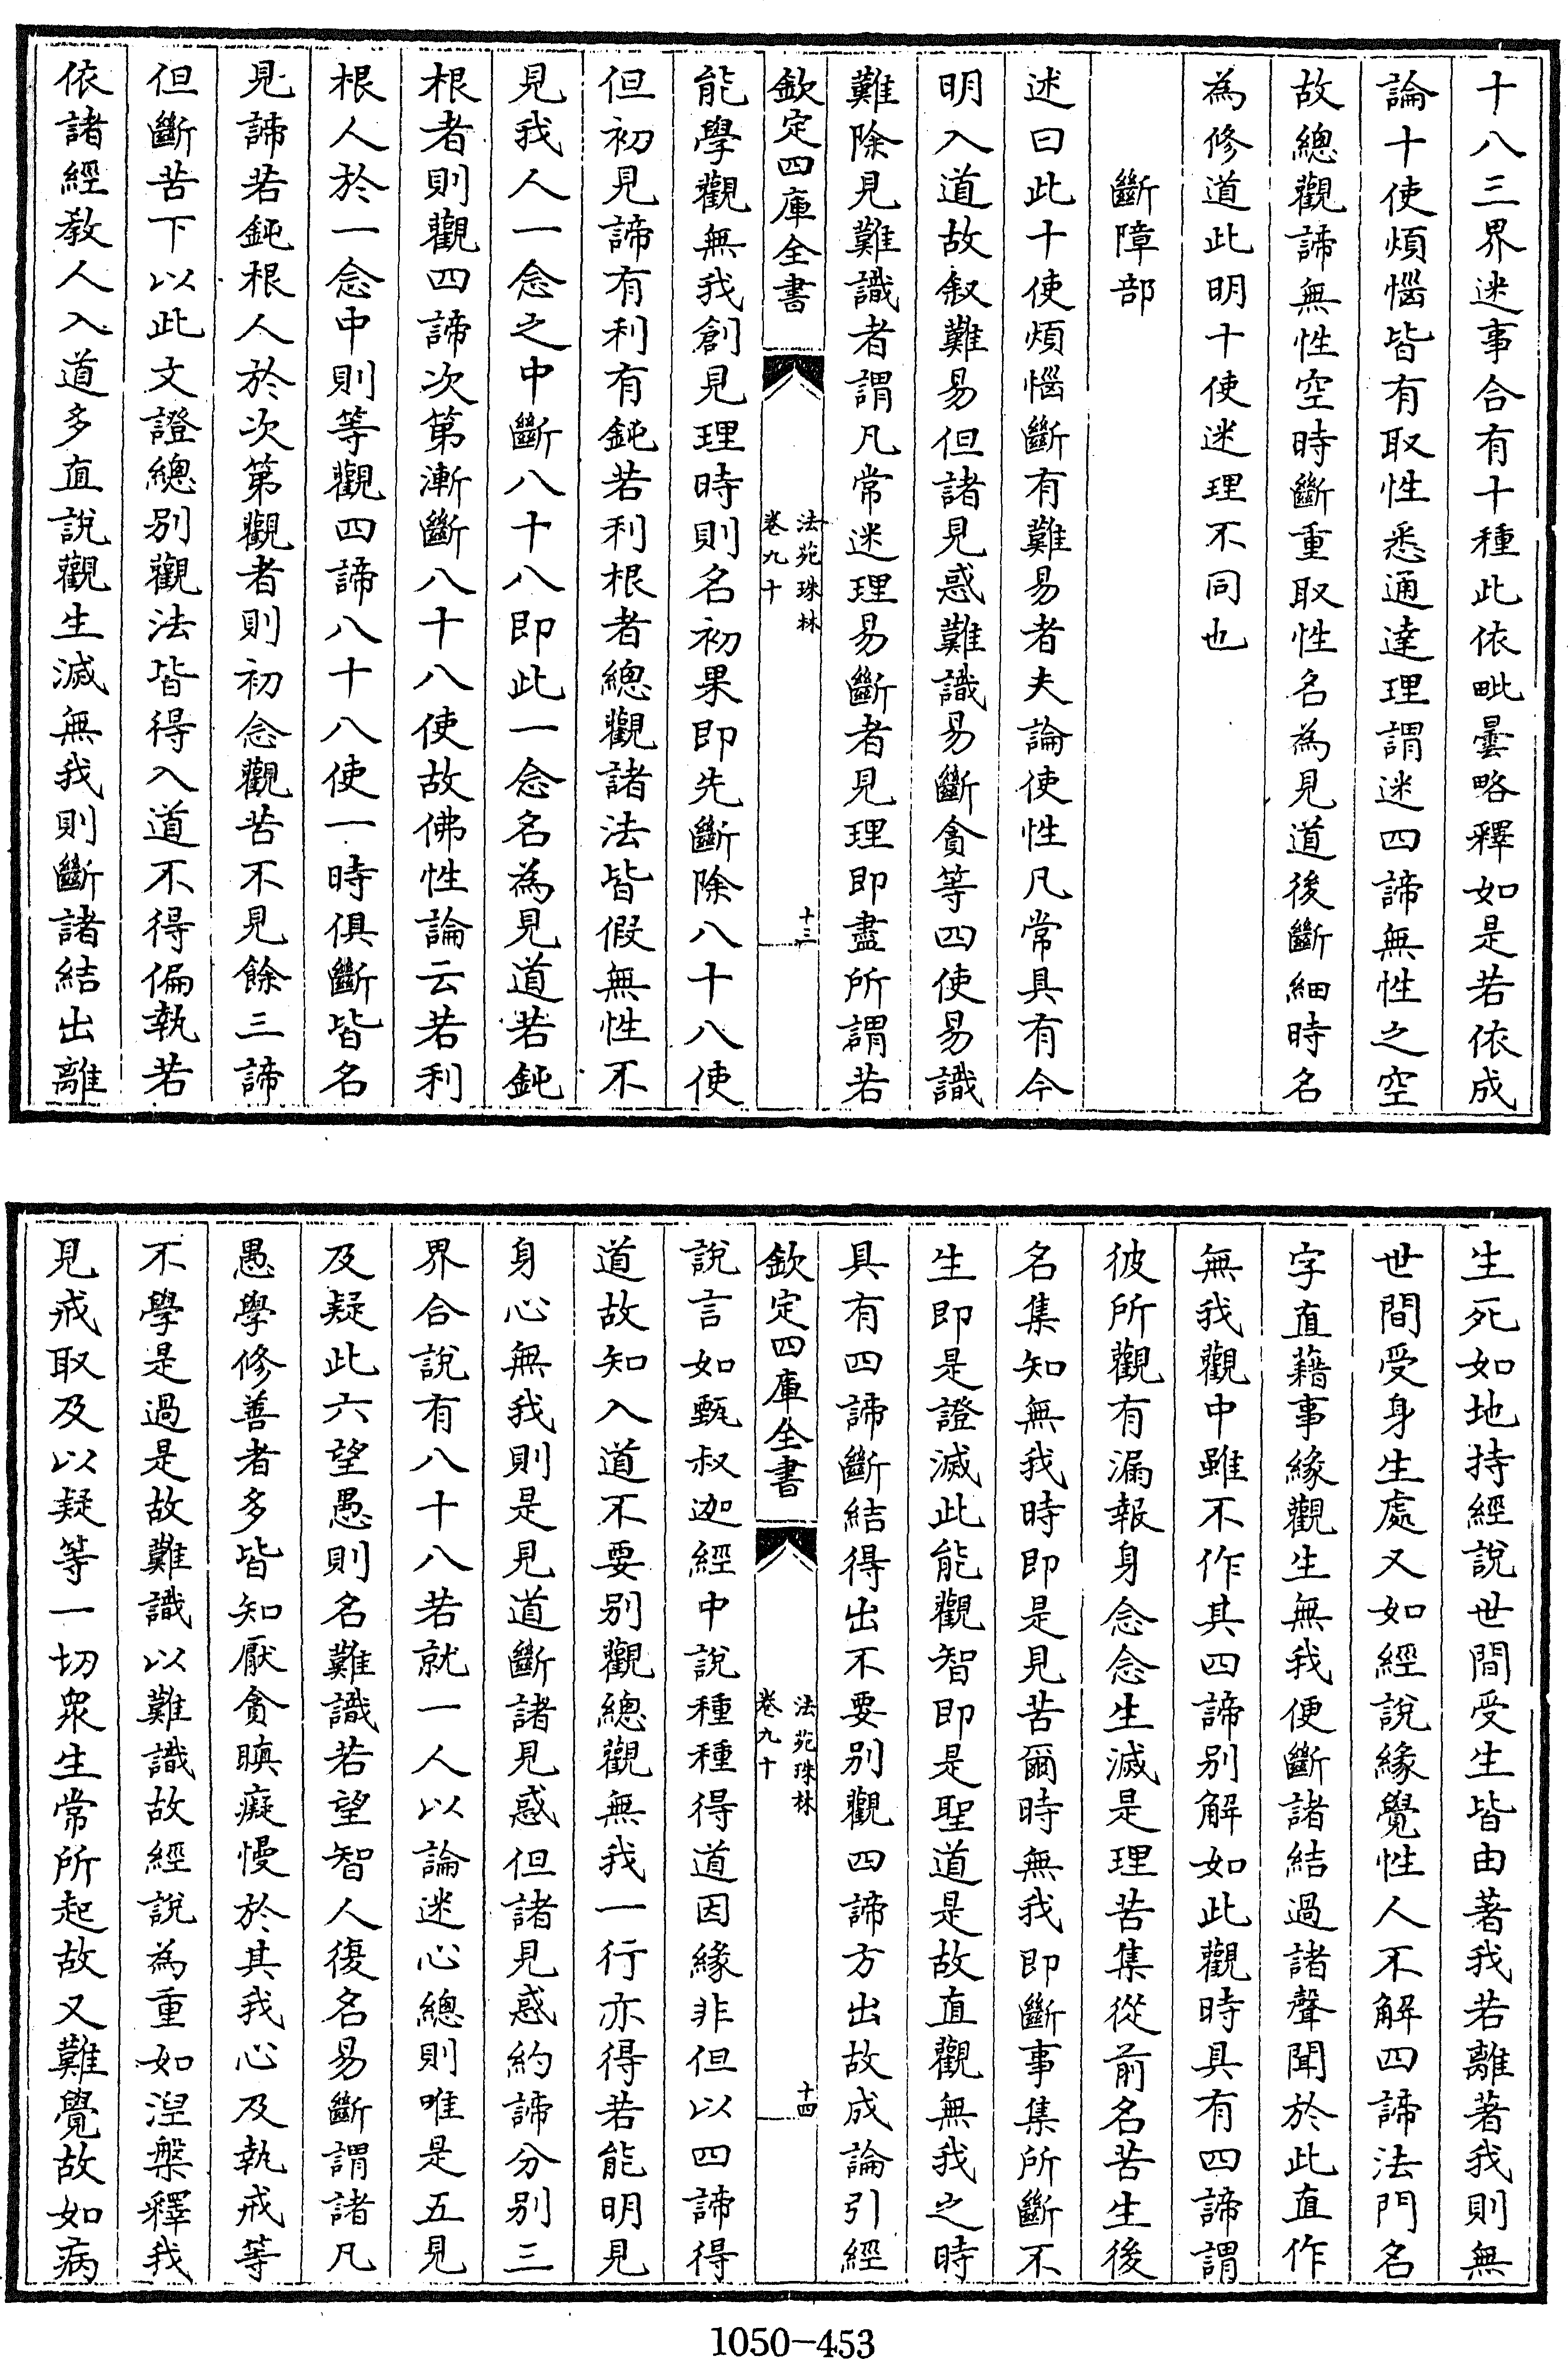 十八三界迷事合有十種此依毗曇略釋如是若依成
論十使煩惱皆有取性悉通達理謂迷四諦無性之空
故總觀諦無性空時斷重取性名為見道後斷細時名
為修道此明十使迷理不同也
斷障部
述曰此十使煩惱斷有難易者夫論使性凡常具有今
明入道故叙難易但諸見惑難識易斷貪等四使易識
難除見難識者謂凡常迷理易斷者見理即盡所謂若
欽定四庫全書
法苑珠林
卷九十
十三
能學觀無我創見理時則名初果即先斷除八十八使
但初見諦有利有鈍若利根者總觀諸法皆假無性不
見我人一念之中斷八十八即此一念名為見道若鈍
根者則觀四諦次第漸斷八十八使故佛性論云若利
根人於一念中則等觀四諦八十八使一時俱斷皆名
見諦若鈍根人於次第觀者則初念觀苦不見餘三諦
但斷苦下以此文證總別觀法皆得入道不得偏執若
依諸經教人入道多直說觀生滅無我則斷諸結出離
生死如地持經說世間受生皆由著我若離著我則無
世間受身生處又如經說緣覺性人不解四諦法門名
字直藉事緣觀生無我便斷諸結過諸聲聞於此直作
無我觀中雖不作其四諦別解如此觀時具有四諦謂
彼所觀有漏報身念念生滅是理苦集從前名苦生後
名集知無我時即是見苦爾時無我即斷事集所斷不
生即是證滅此能觀智即是聖道是故直觀無我之時
具有四諦斷結得出不要別觀四諦方出故成論引經
欽定四庫全書
法苑珠林
卷九十
十四
說言如甄叔迦經中說種種得道因緣非但以四諦得
道故知入道不要別觀總觀無我一行亦得若能明見
身心無我則是見道斷諸見惑但諸見惑約諦分別三
界合說有八十八若就一人以論迷心總則唯是五見
及疑此六望愚則名難識若望智人復名易斷謂諸凡
愚學修善者多皆知厭貪瞋癡慢於其我心及執戒等
不學是過是故難識以難識故經說為重如涅槃釋我
見戒取及以疑等一切眾生常所起故又難覺故如病
1050-453